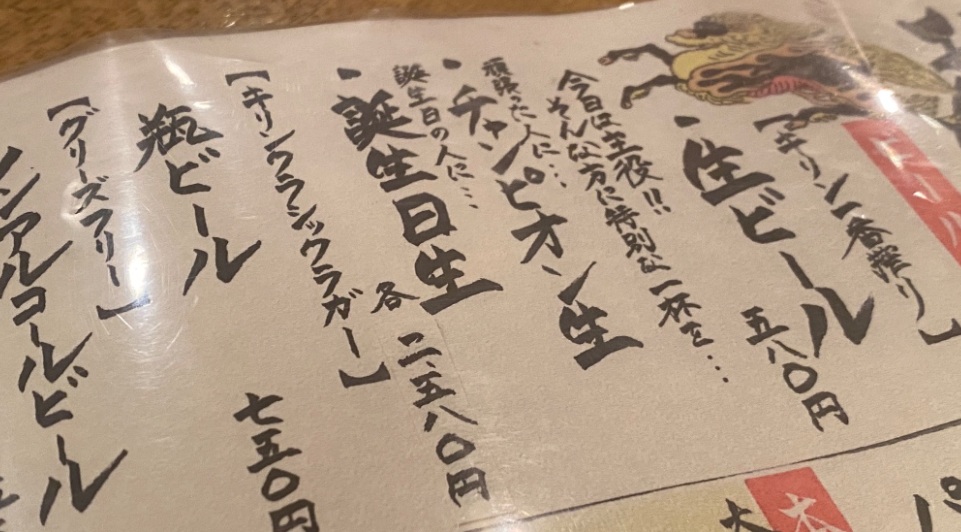 【キリン一番搾り】
・生ビール
五八〇円
今日は主役!!
そんな方に特別な一杯を…
頑張った人に…
・チャンピオン生
誕生日の人に…
・誕生日生
各二、五八〇円
【キリンクラシックラガー】
瓶ビール
七五〇円
【グリーズフリー】
ノンアルコールビール